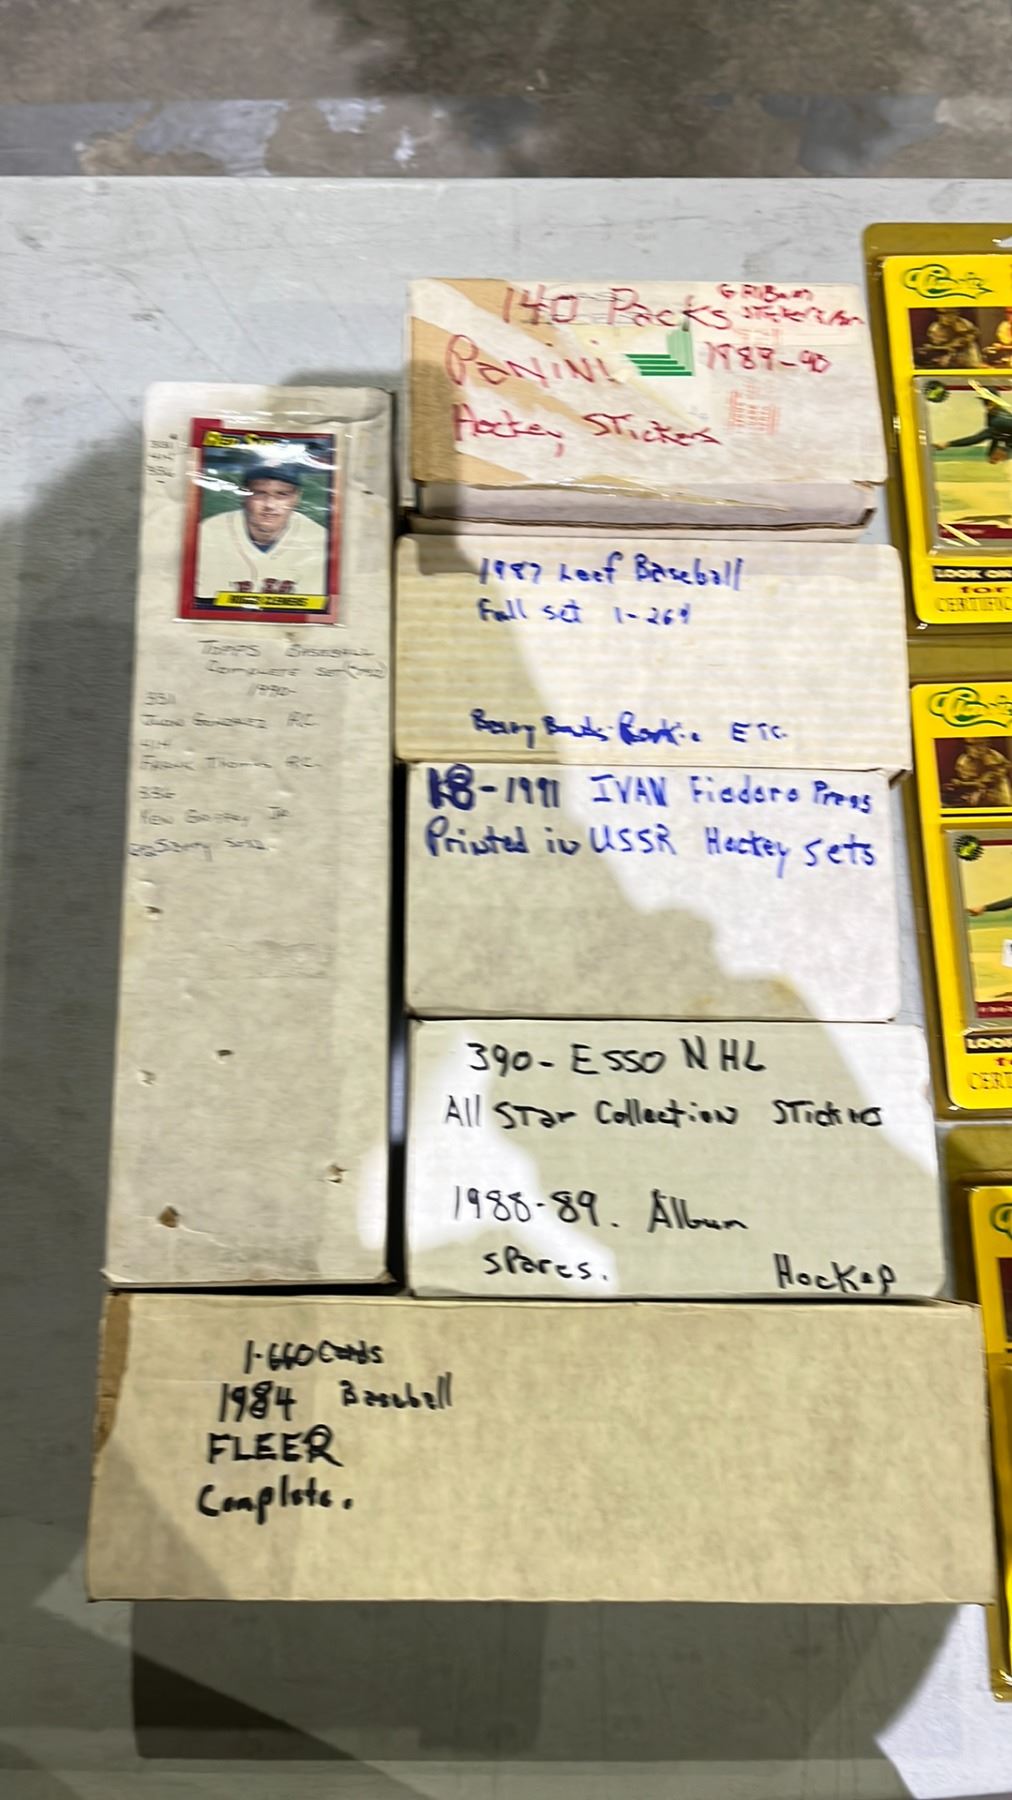 140 Packs
Panini 1989-90
Hockey Stickers
1987 Leaf Baseball
Full set 1-264
Barry Bonds Rookie ETC.
18-1991 IVAN Fiodoro Press
Printed in USSR Hockey Sets
390-ESSO NHL
All STar Collection STickers
1988-89. Album
spares. Hockey
Red Sox
331
414
336
TOPPS BASEBALL
COMPLETE SET(792)
1990-
331
JUAN GONZALEZ RC.
414
FRANK THOMAS RC.
336
KEN GRIFFEY JR.
SAMMY SOSA
1-660 Cards
1984 Baseball
FLEER
Complete.
Classic
LOOK
for
CERTIFIC
Classic
LOOK
CERT